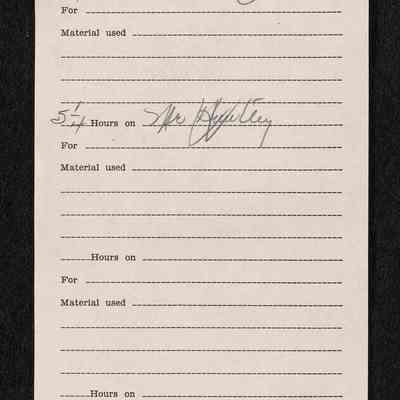 For
Material used
5 1/4 Hours on Mr
For
Material used
Hours on
For
Material used
Hours on